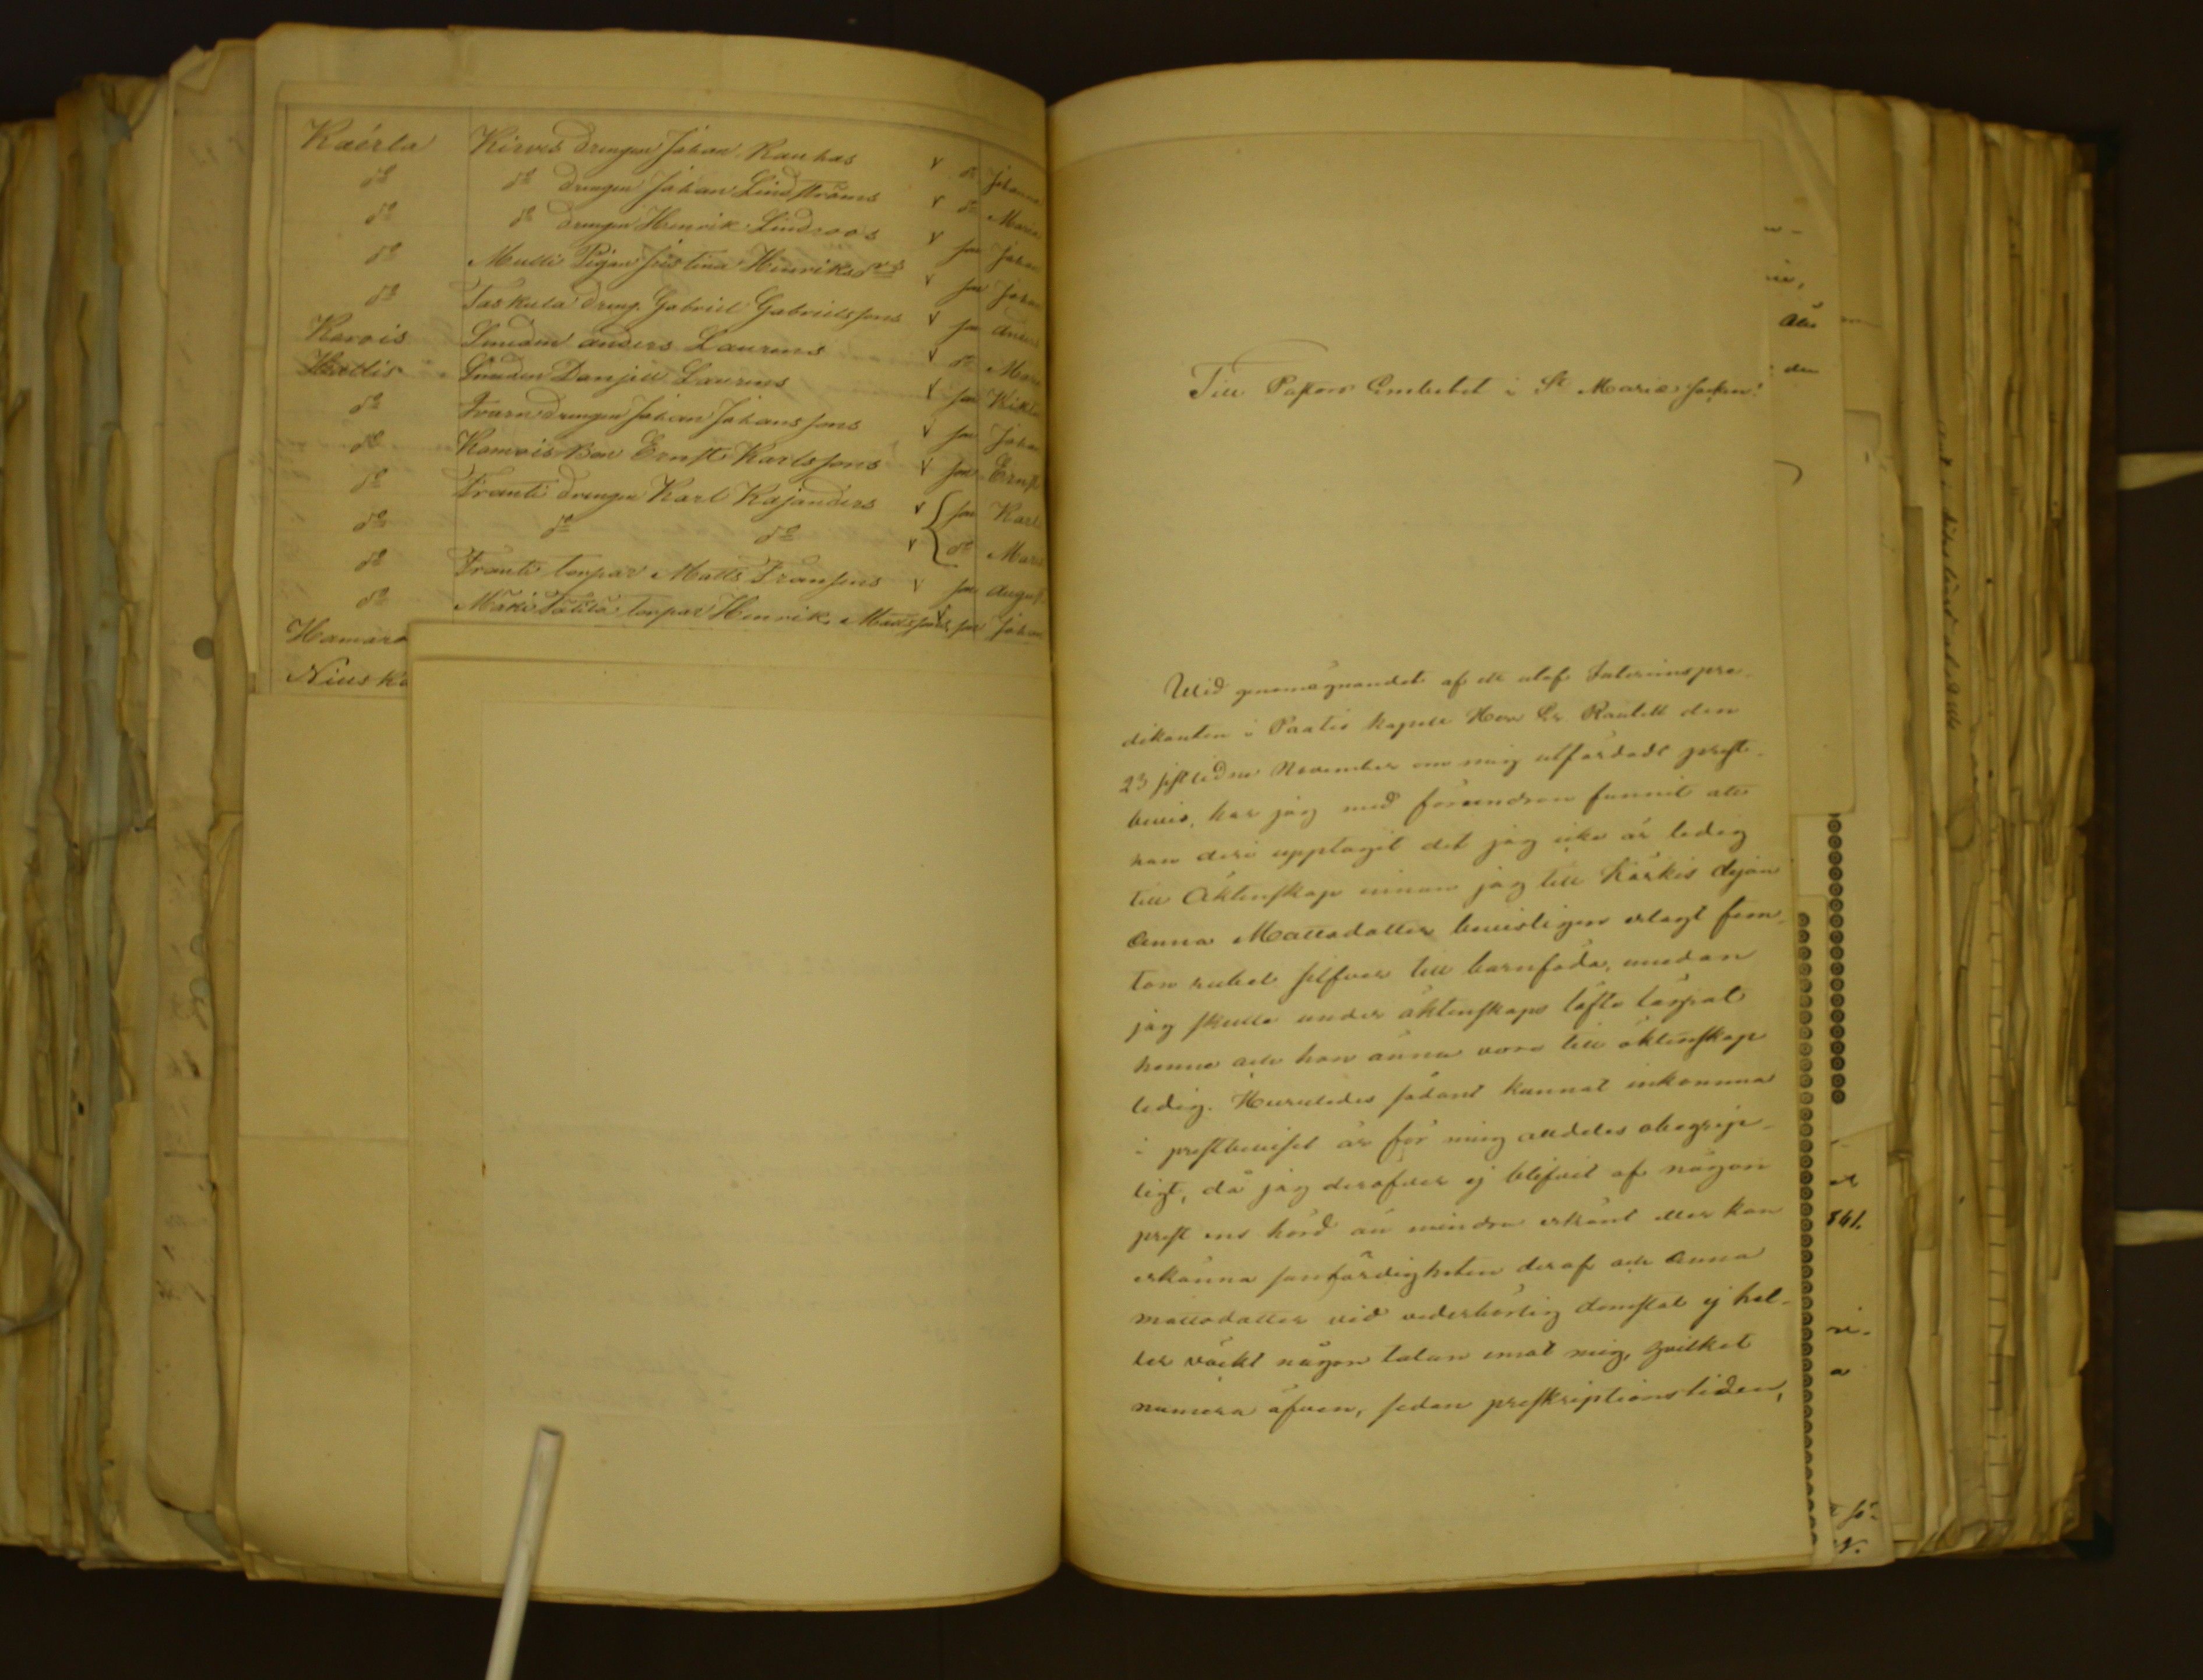 Kaérla Kirves drengen Johan Rauhas v do Johanna
do do drengen Johan Lindströms v do Maria
do do drengen Henrik Lindroos v son Johan
do Mulli Pigan Justina Henriksdrs v son Johan
do Taskula dreng. Gabriel Gabrielssons v son Anders
Karvis Smeden Anders Laurens v do Maria
Kallis Smeden Danjell Laurens v son Vikto
do Qvarndrengen Johan Johanssons v son Johan
do Komois Bon Ernst Karlssons v son Ernst
do Frantti drengen Karl Kajanders v son Karl
do do do v do Maria
do Frantti torpar Matts Fransens v son August
do Mäki Täkilä torpar Henrik Mattssons v son Johan
Hamaro
Niuska
Till Pastors Embetet i St Mariæ Socken!
Wid genomögnandet af ett utaf Interimspre-
dikanten i Paatis kapell Herr Er. Rautell den
23 sistlidne November om mig utfärdadt prest-
bevis, har jag med förundran funnit att
han deri upptagit det jag icke är ledig
till Äktenskap innan jag till Kärkis dejan
Anna Mattsdotter bevisligen erlagt fem-
ton rubel silfver till barnföda, medan
jag skulle under äktenskaps löfte lägrat
henne att hon ännu vore till äktenskap
ledig. Huruledes sådant kunnat inkomma
i prestbeviset är för mig alldeles obegrip-
ligt, då jag deröfver ej blifvit af någon
prest ens hörd än mindre erkänt eller kan
erkänna sanfärdigheten deraf att Anna
Mattsdotter vid vederbörlig domstol ej hel-
ler väckt någon talan emot mig, hvilket
numera äfven, sedan preskriptionstiden,
att
den
841.